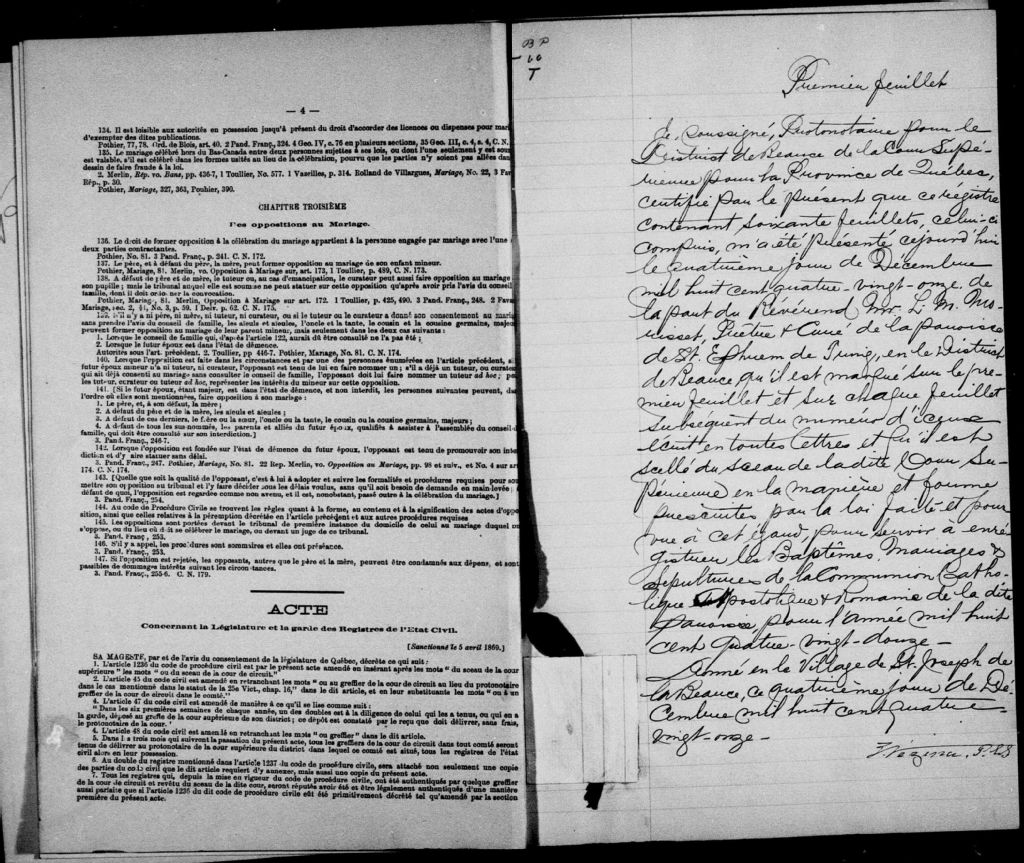 — 4 —
134. Il est loisible aux autorités en possession jusqu'à présent du droit d'accorder des licences ou dispenses pour
d'exempter des dites publications.
Pothier, 77, 78. Ord. de Blois, art. 40. 2 Pand. Franç., 324. 4 Geo. IV, c. 76 en plusieurs sections, 35 Geo. III, c. 4, s. 4, C. N.
135. Le mariage célébré hors du Bas-Canada entre deux personnes sujettes à ses lois, ou dont l'une seulement y est
est valable, s'il est célébré dans les formes usités au lieu de la célébration, pourvu que les parties n'y soient pas allées dans
dessin de faire fraude à la loi.
2. Merlin, Rép. vo. Bans, pp. 436-7, 1 Toullier, No. 577. 1 Vazeilles, p. 314. Rolland de Villargues, Mariage, No. 22, 3
Rép., p. 30.
Pothier, Mariage, 327, 363, Pouhier, 390.
CHAPITRE TROISIÈME
Des oppositions au Mariage.
136. Le droit de former opposition à la célébration du mariage appartient à la personne engagée par mariage avec l'une
deux parties contractantes.
Pothier, No. 81. 3 Pand. Franç., p. 241. C. N. 172.
137. Le père, et à défaut du père, la mère, peut former opposition au mariage de son enfant mineur.
Pothier, Mariage, 81. Merlin, vo. Opposition à Mariage sur, art. 173, 1 Toullier, p. 489, C. N. 173.
138. A défaut de père et de mère, le tuteur, ou, au cas d'émancipation, le curateur peut aussi faire opposition au mariage
son pupille; mais le tribunal auquel elle est soumise ne peut statuer sur cette opposition qu'après avoir pris l'avis du conseil
famille, dont il doit ordonner la convocation.
Pothier, Mariage, 81. Merlin, Opposition à Mariage sur art. 172. 1 Toullier, p. 425, 490. 3 Pand. Franç., 248. 2
Mariage, sec. 2, No. 3, p. 59. 1 Delv. p. 62. C. N. 175.
139. S'il n'y a ni père, ni mère, ni tuteur, ni curateur, ou si le tuteur ou le curateur a donné son consentement au
sans prendre l'avis du conseil de famille, les aïeuls et aïeules, l'oncle et la tante, le cousin et la cousine germains,
peuvent former opposition au mariage de leur parent mineur, mais seulement dans les deux cas suivants:
1. Lorsque le conseil de famille qui, d'après l'article 122, aurait dû être consulté ne l'a pas été;
2. Lorsque le futur époux est dans l'état de démence.
Autorités sous l'art. précédent. 2. Toullier, pp 446-7. Pothier, Mariage, No. 81. C. N. 174.
140. Lorsque l'opposition est faite dans les circonstances et par une des personnes énumérées en l'article précédent,
futur époux mineur n'a ni tuteur, ni curateur, l'opposant est tenu de lui en faire nommer un; s'il a déjà un tuteur, ou
qui ait déjà consenti au mariage sans consulter le conseil de famille, l'opposant doit lui faire nommer un tuteur ad hoc;
les tuteur, curateur ou tuteur ad hoc, représenter les intérêts du mineur sur cette opposition.
141. [Si le futur époux, étant majeur, est dans l'état de démence, et non interdit, les personnes suivantes peuvent,
l'ordre où elles sont mentionnées, faire opposition à son mariage:
1. Le père, et, à son défaut, la mère;
2. A défaut du père et de la mère, les aïeuls et aïeules;
3. A défaut de ces derniers, le frère ou la sœur, l'oncle ou la tante, le cousin ou la cousine germains, majeurs;
4. A défaut de tous les sus-nommés, les parents et alliés du futur époux, qualifiés à assister à l'assemblée du conseil
famille, qui doit être consulté sur son interdiction.]
3. Pand. Franç., 246-7.
142. Lorsque l'opposition est fondée sur l'état de démence du futur époux, l'opposant est tenu de promouvoir son
diction et d'y aire statuer sans délai.
3. Pand. Franç., 247. Pothier, Mariage, No. 81. 22 Rep. Merlin, vo. Opposition au Mariage, pp. 98 et suiv., et No. 4 sur
174. C. N. 174.
143. [Quelle que soit la qualité de l'opposant, c'est à lui à adopter et suivre les formalités et procédures requises pour
mettre son opposition au tribunal et l'y faire décider sous les délais voulus, sans qu'il soit besoin de demande en main levée;
défaut de quoi, l'opposition est regardée comme non avenu, et il est, nonobstant, passé outre à la célébration du mariage.]
3. Pand. Franç., 254.
144. Au code de Procédure Civile se trouvent les règles quant à la forme, au contenu et à la signification des actes
sition, ainsi que celles relatives à la péremption décrétée en l'article précédent et aux autres procédures requises
145. Les oppositions sont portées devant le tribunal de première instance du domicile de celui au mariage duquel
s'oppose, ou du lieu où doit se célébrer le mariage, ou devant un juge de ce tribunal.
3. Pand. Franç, 253.
146. S'il y a appel, les procédures sont sommaires et elles ont préséance.
3. Pand. Franç., 253.
147. Si l'opposition est rejetée, les opposants, autres que le père et la mère, peuvent être condamnés aux dépens, et
passibles de dommages intérêts suivant les circonstances.
3. Pand. Franç., 255-6. C. N. 179.
ACTE
Concernant la Législature et la garde des Registres de l'Etat Civil.
[Sanctionné le 5 avril 1869.]
SA MAGESTE, par et de l'avis du consentement de la législature de Québec, décrète ce qui suit:
1. L'article 1236 du code de procédure civile est par le présent acte amendé en insérant après les mots " du sceau de la cour
supérieure " les mots " ou du sceau de la cour de circuit."
2. L'article 45 du code civil est amendé en retranchant les mots " ou au greffier de la cour de circuit au lieu du protonotaire
dans le cas mentionné dans le statut de la 25e Vict., chap. 16," dans le dit article, et en leur substituant les mots "
greffier de la cour de circuit dans le comté."
4. L'article 47 du code civil est amendé de manière à ce qu'il se lise comme suit:
" Dans les six premières semaines de chaque année, un des doubles est à la diligence de celui qui les a tenus, ou qui en a
la garde, déposé au greffe de la cour supérieure de son district; ce dépôt est constaté par le reçu que doit délivrer, sans frais,
le protonotaire de la cour. "
4. L'article 48 du code civil est amendé en retranchant les mots " on greffier" dans le dit article.
5. Dans les trois mois qui suivront la passation du présent acte, tous les greffiers de la cour de circuit dans tout comté seront
tenus de délivrer au protonotaire de la cour supérieure du district dans lequel ce comté est situé, tous les registres de l'état
civil alors en leur possession.
6. Au double du registre mentionné dans l'article 1237 du code de procédure civile, sera attaché non seulement une copie
des parties du code civil que le dit article requiert d'y annexer, mais aussi une copie du présent acte.
7. Tous les registres qui, depuis la mise en vigueur du code de procédure civile, ont été authentiqués par quelque greffier
de la cour de circuit et revêtu du sceau de la dite cour, seront réputés avoir été et être légalement authentiqués d'une manière
aussi parfaite que si l'article 1236 du dit code de procédure civile eût été primitivement décrété tel qu'amendé par la section
première du présent acte.
BP
60
T
Premier feuillet
Je, soussigné, Protonotaire pour le
District de Beauce de la Cour Supé-
rieure pour la Province de Québec,
certifie par le présent que ce régistre
contenant soixante feuillets, celui-ci
compris, m'a été présenté cejourd'hui
le quatrième jour de Décembre
mil huit cent quatre-vingt-onze de
la part du Révérend Mr. L. M. Mo-
risset, Prêtre & Curé de la paroisse
de St. Ephrem de Tring, en le District
de Beauce, qu'il est marqué sur le pre-
mier feuillet et sur chaque feuillet
subséquent du numéro d'iceux
écrit en toutes lettres et qu'il est
scellé du sceau de la dite Cour Su-
périeure, en la manière et forme
prescrites par la loi faite et pour
vue à cet égard, pour servir à enré
gistrer les Baptêmes, Mariages &
Sépultures de la Communion Catho-
lique Apostolique & Romaine de la dite
Paroisse pour l'année mil huit
cent quatre-vingt-douze -
Donné en le Village de St. Joseph de
la Beauce, ce quatrième jour de Dé-
cembre mil huit cent quatre-
vingt-onze -
P.C.S